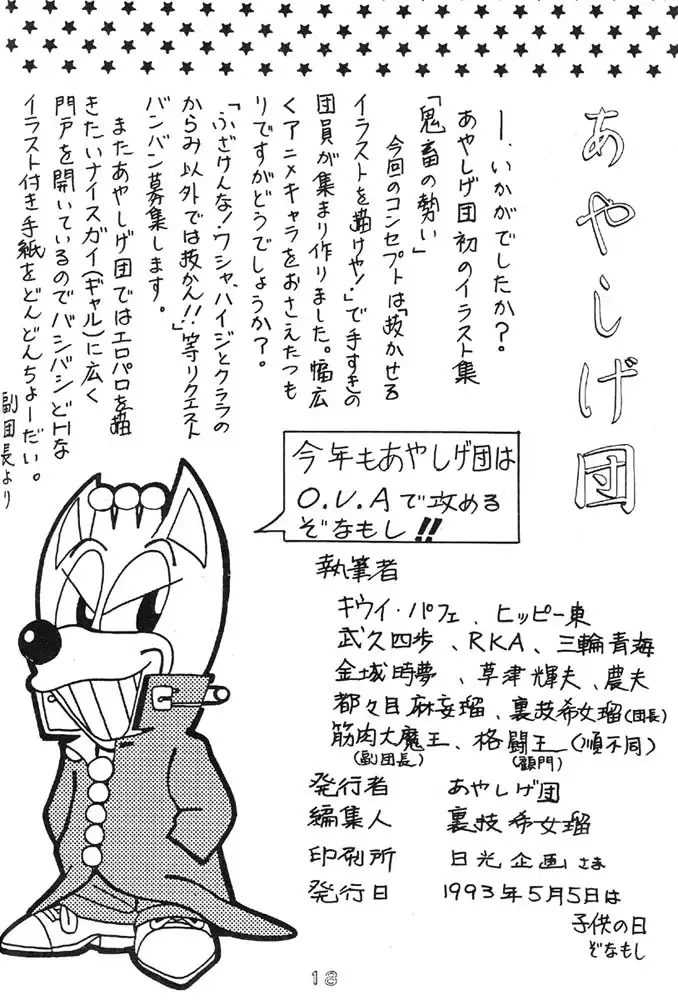 あやしげ団
―、いかがでしたか?
あやしげ団初のイラスト集
「鬼畜の勢い」
今回のコンセプトは「抜かせる
イラストを描けや!」で手すきの
団員が集まり作りました。幅広
くアニメキャラをおさえたつも
りですがどうでしょうか?。
「ふざけんな!ワシャ、ハイジとクララの
からみ以外では抜かん!!」等リクエスト
バンバン募集します。
またあやしげ団ではエロパロを描
きたいナイスガイ(ギャル)に広く
門戸を開いているのでバシバシどHな
イラスト付き手紙をどんどんちょーだい。
副団長より
今年もあやしげ団は
O.V.Aで攻める
ぞなもし!!
執筆者
キウイ・パフェ、ヒッピー東
武久四歩、RKA、三輪青海
金城時夢、草津輝夫、農夫
都々目麻妄瑠、裏技希女瑠(団長)
筋肉大魔王、格闘王(順不同)
(副団長)(顧門)
発行者 あやしげ団
編集人 裏技希女瑠
印刷所 日光企画さま
発行日 1993年5月5日は
子供の日
ぞなもし
18